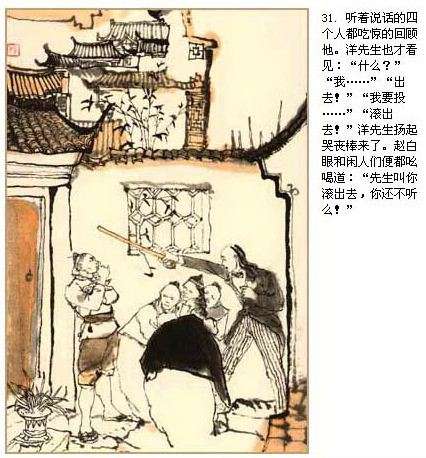 31. 听着说话的四
个人都吃惊的回顾
他。洋先生也才看
见：“什么？”
“我……”“出
去！”“我要投
……”“滚出
去！”洋先生扬起
哭丧棒来了。赵白
眼和闲人们便都吆
喝道：“先生叫你
滚出去，你还不听
么！”